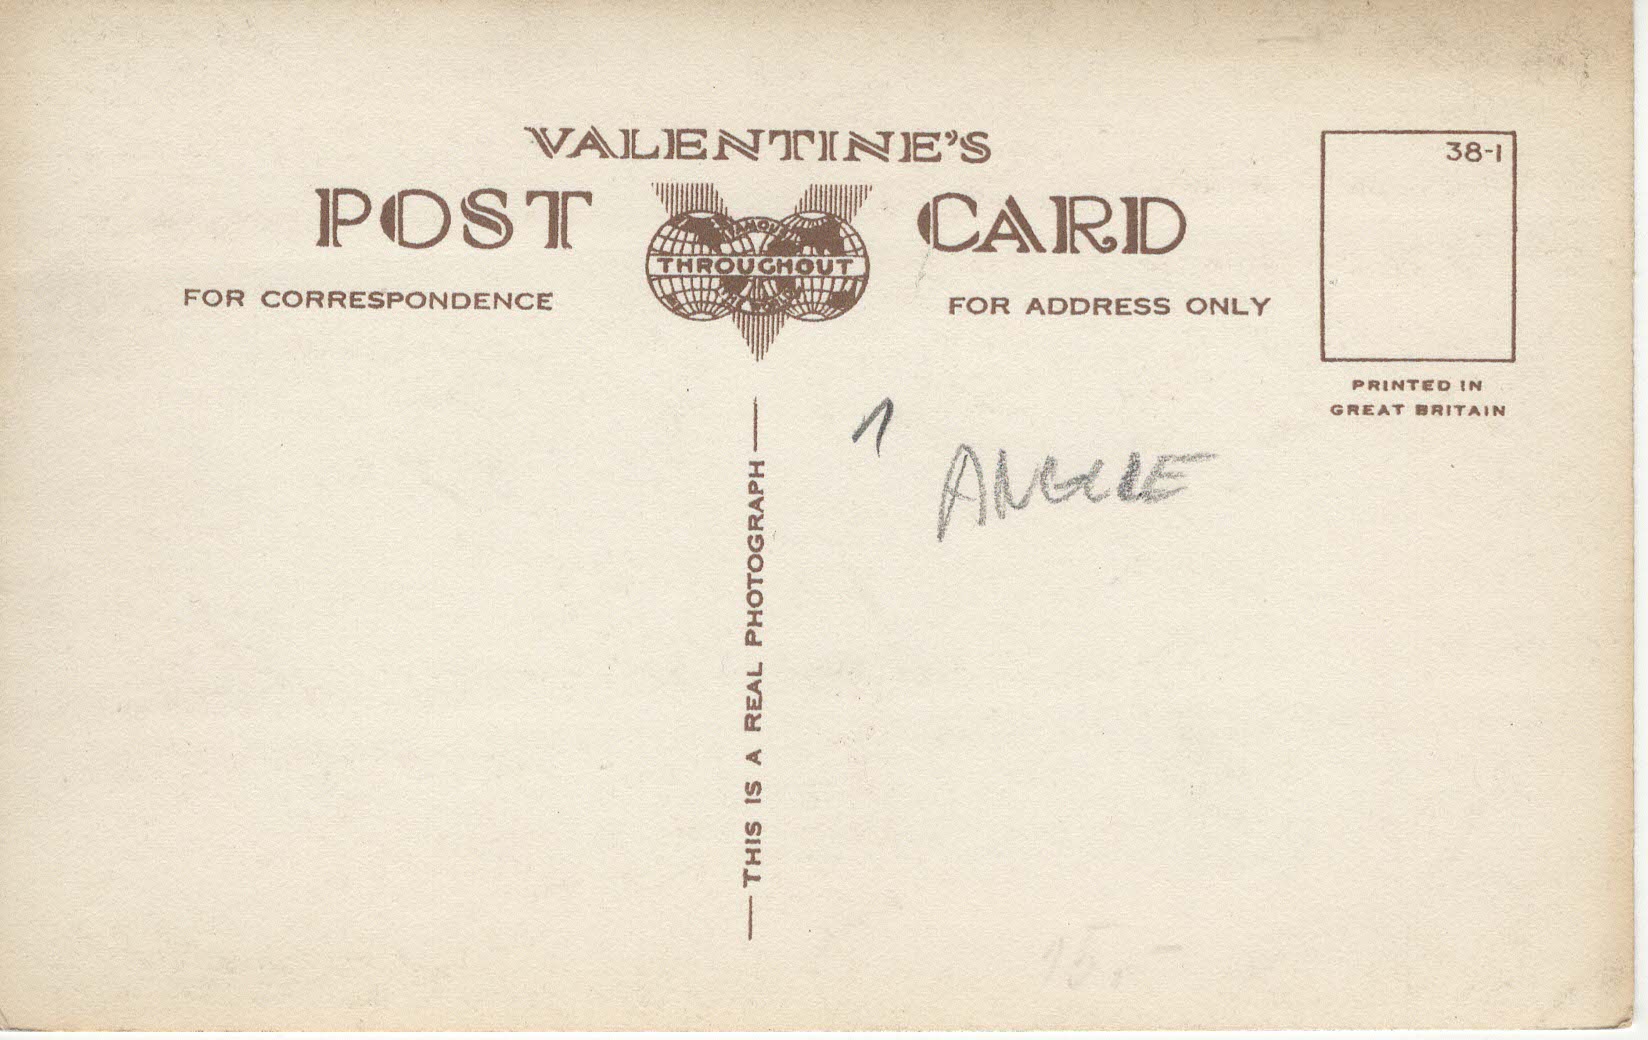 VALENTINE'S
POST CARD
FAMOUS
THROUGHOUT
THE WORLD
FOR CORRESPONDENCE
FOR ADDRESS ONLY
38-1
PRINTED IN
GREAT BRITAIN
1
THIS IS A REAL PHOTOGRAPH
15.-